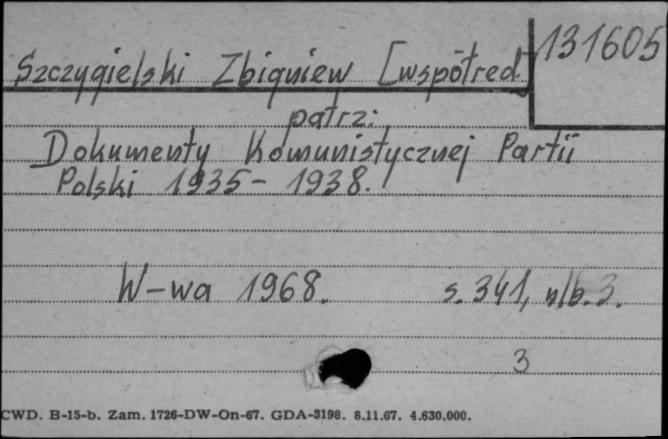 131605
Szczygielski Zbigniew [współred]
patrz:
Dokumenty Komunistycznej Partii
Polski 1935 - 1938.
W-wa 1968. s. 341, nlb. 3.
3
CWD. B-15-b. Zam. 1726-DW-On-67. GDA-3198. 8.11.67. 4.630.000.